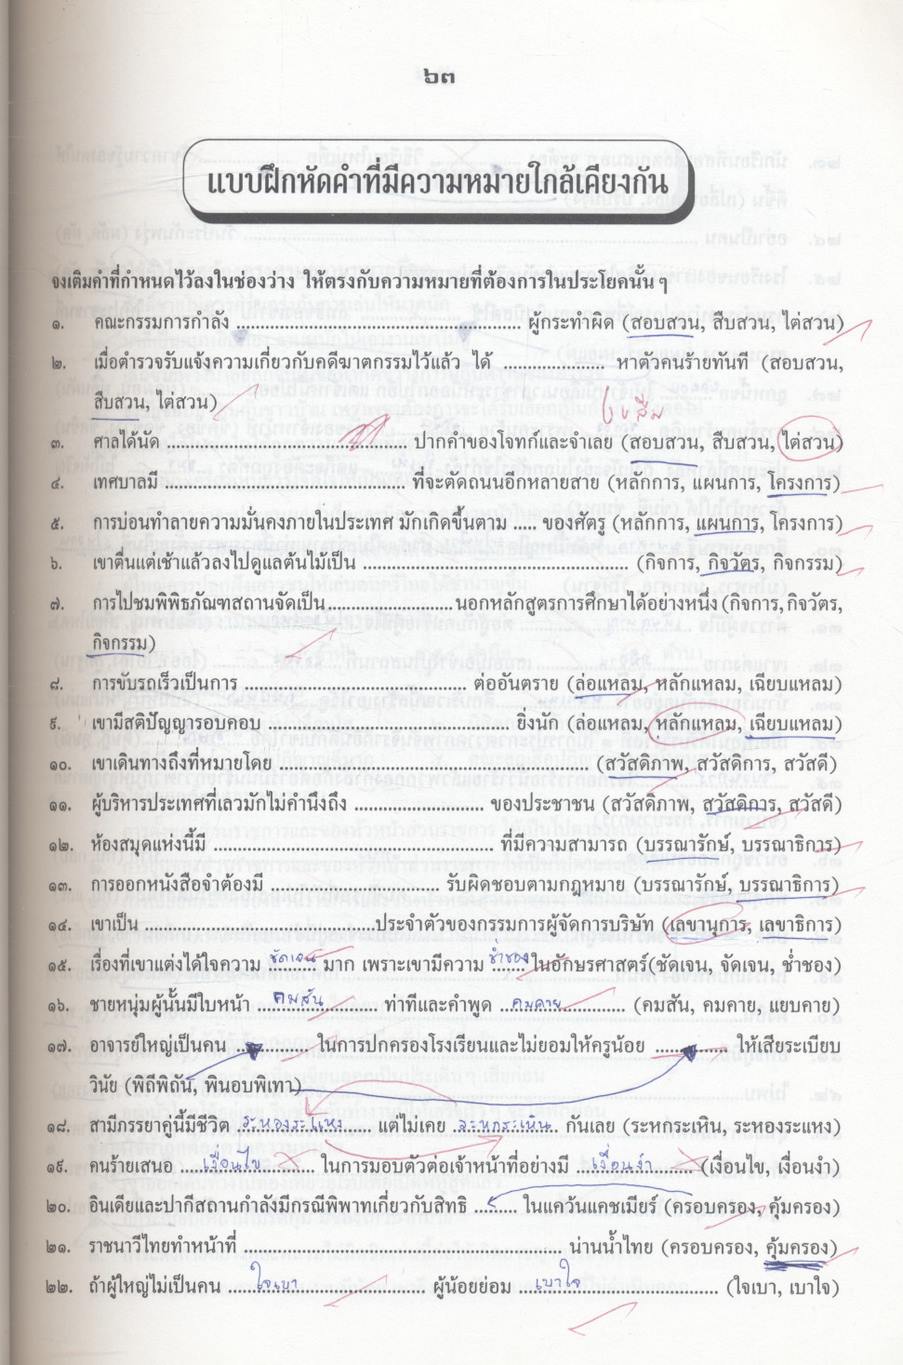 ๖๓
แบบฝึกหัดคำที่มีความหมายใกล้เคียงกัน
จงเติมคำที่กำหนดไว้ลงในช่องว่าง ให้ตรงกับความหมายที่ต้องการในประโยคนั้น ๆ
๑. คณะกรรมการกำลัง .................................................... ผู้กระทำผิด (สอบสวน, สืบสวน, ไต่สวน)
๒. เมื่อตำรวจรับแจ้งความเกี่ยวกับคดีฆาตกรรมไว้แล้ว ได้ .................... หาตัวคนร้ายทันที (สอบสวน,
สืบสวน, ไต่สวน)
๓. ศาลได้นัด ................................................ ปากคำของโจทก์และจำเลย (สอบสวน, สืบสวน, ไต่สวน)
๔. เทศบาลมี ................................................ ที่จะตัดถนนอีกหลายสาย (หลักการ, แผนการ, โครงการ)
๕. การบ่อนทำลายความมั่นคงภายในประเทศ มักเกิดขึ้นตาม ..... ของศัตรู (หลักการ, แผนการ, โครงการ)
๖. เขาตื่นแต่เช้าแล้วลงไปดูแลต้นไม้เป็น .................................................... (กิจการ, กิจวัตร, กิจกรรม)
๗. การไปชมพิพิธภัณฑสถานจัดเป็น........................นอกหลักสูตรการศึกษาได้อย่างหนึ่ง (กิจการ, กิจวัตร,
กิจกรรม)
๘. การขับรถเร็วเป็นการ ............................................ ต่ออันตราย (ล่อแหลม, หลักแหลม, เฉียบแหลม)
๙. เขามีสติปัญญารอบคอบ ................................................ ยิ่งนัก (ล่อแหลม, หลักแหลม, เฉียบแหลม)
๑๐. เขาเดินทางถึงที่หมายโดย ............................................................ (สวัสดิภาพ, สวัสดิการ, สวัสดี)
๑๑. ผู้บริหารประเทศที่เลวมักไม่คำนึงถึง ......................... ของประชาชน (สวัสดิภาพ, สวัสดิการ, สวัสดี)
๑๒. ห้องสมุดแห่งนี้มี ...................................................... ที่มีความสามารถ (บรรณารักษ์, บรรณาธิการ)
๑๓. การออกหนังสือจำต้องมี ................................. รับผิดชอบตามกฎหมาย (บรรณารักษ์, บรรณาธิการ)
๑๔. เขาเป็น ............................................ประจำตัวของกรรมการผู้จัดการบริษัท (เลขานุการ, เลขาธิการ)
๑๕. เรื่องที่เขาแต่งได้ใจความ ชัดเจน มาก เพราะเขามีความ ช่ำชอง ในอักษรศาสตร์(ชัดเจน, จัดเจน, ช่ำชอง)
๑๖. ชายหนุ่มผู้นั้นมีใบหน้า คมสัน ท่าทีและคำพูด คมคาย (คมสัน, คมคาย, แยบคาย)
๑๗. อาจารย์ใหญ่เป็นคน ................ ในการปกครองโรงเรียนและไม่ยอมให้ครูน้อย .............. ให้เสียระเบียบ
วินัย (พิถีพิถัน, พินอบพิเทา)
๑๘. สามีภรรยาคู่นี้มีชีวิต ระหองระแหง แต่ไม่เคย ระหกระเหิน กันเลย (ระหกระเหิน, ระหองระแหง)
๑๙. คนร้ายเสนอ เงื่อนไข ในการมอบตัวต่อเจ้าหน้าที่อย่างมี เงื่อนงำ (เงื่อนไข, เงื่อนงำ)
๒๐. อินเดียและปากีสถานกำลังมีกรณีพิพาทเกี่ยวกับสิทธิ ......... ในแคว้นแคชเมียร์ (ครอบครอง, คุ้มครอง)
๒๑. ราชนาวีไทยทำหน้าที่ ................................................................ น่านน้ำไทย (ครอบครอง, คุ้มครอง)
๒๒. ถ้าผู้ใหญ่ไม่เป็นคน ใจเบา ผู้น้อยย่อม เบาใจ (ใจเบา, เบาใจ)